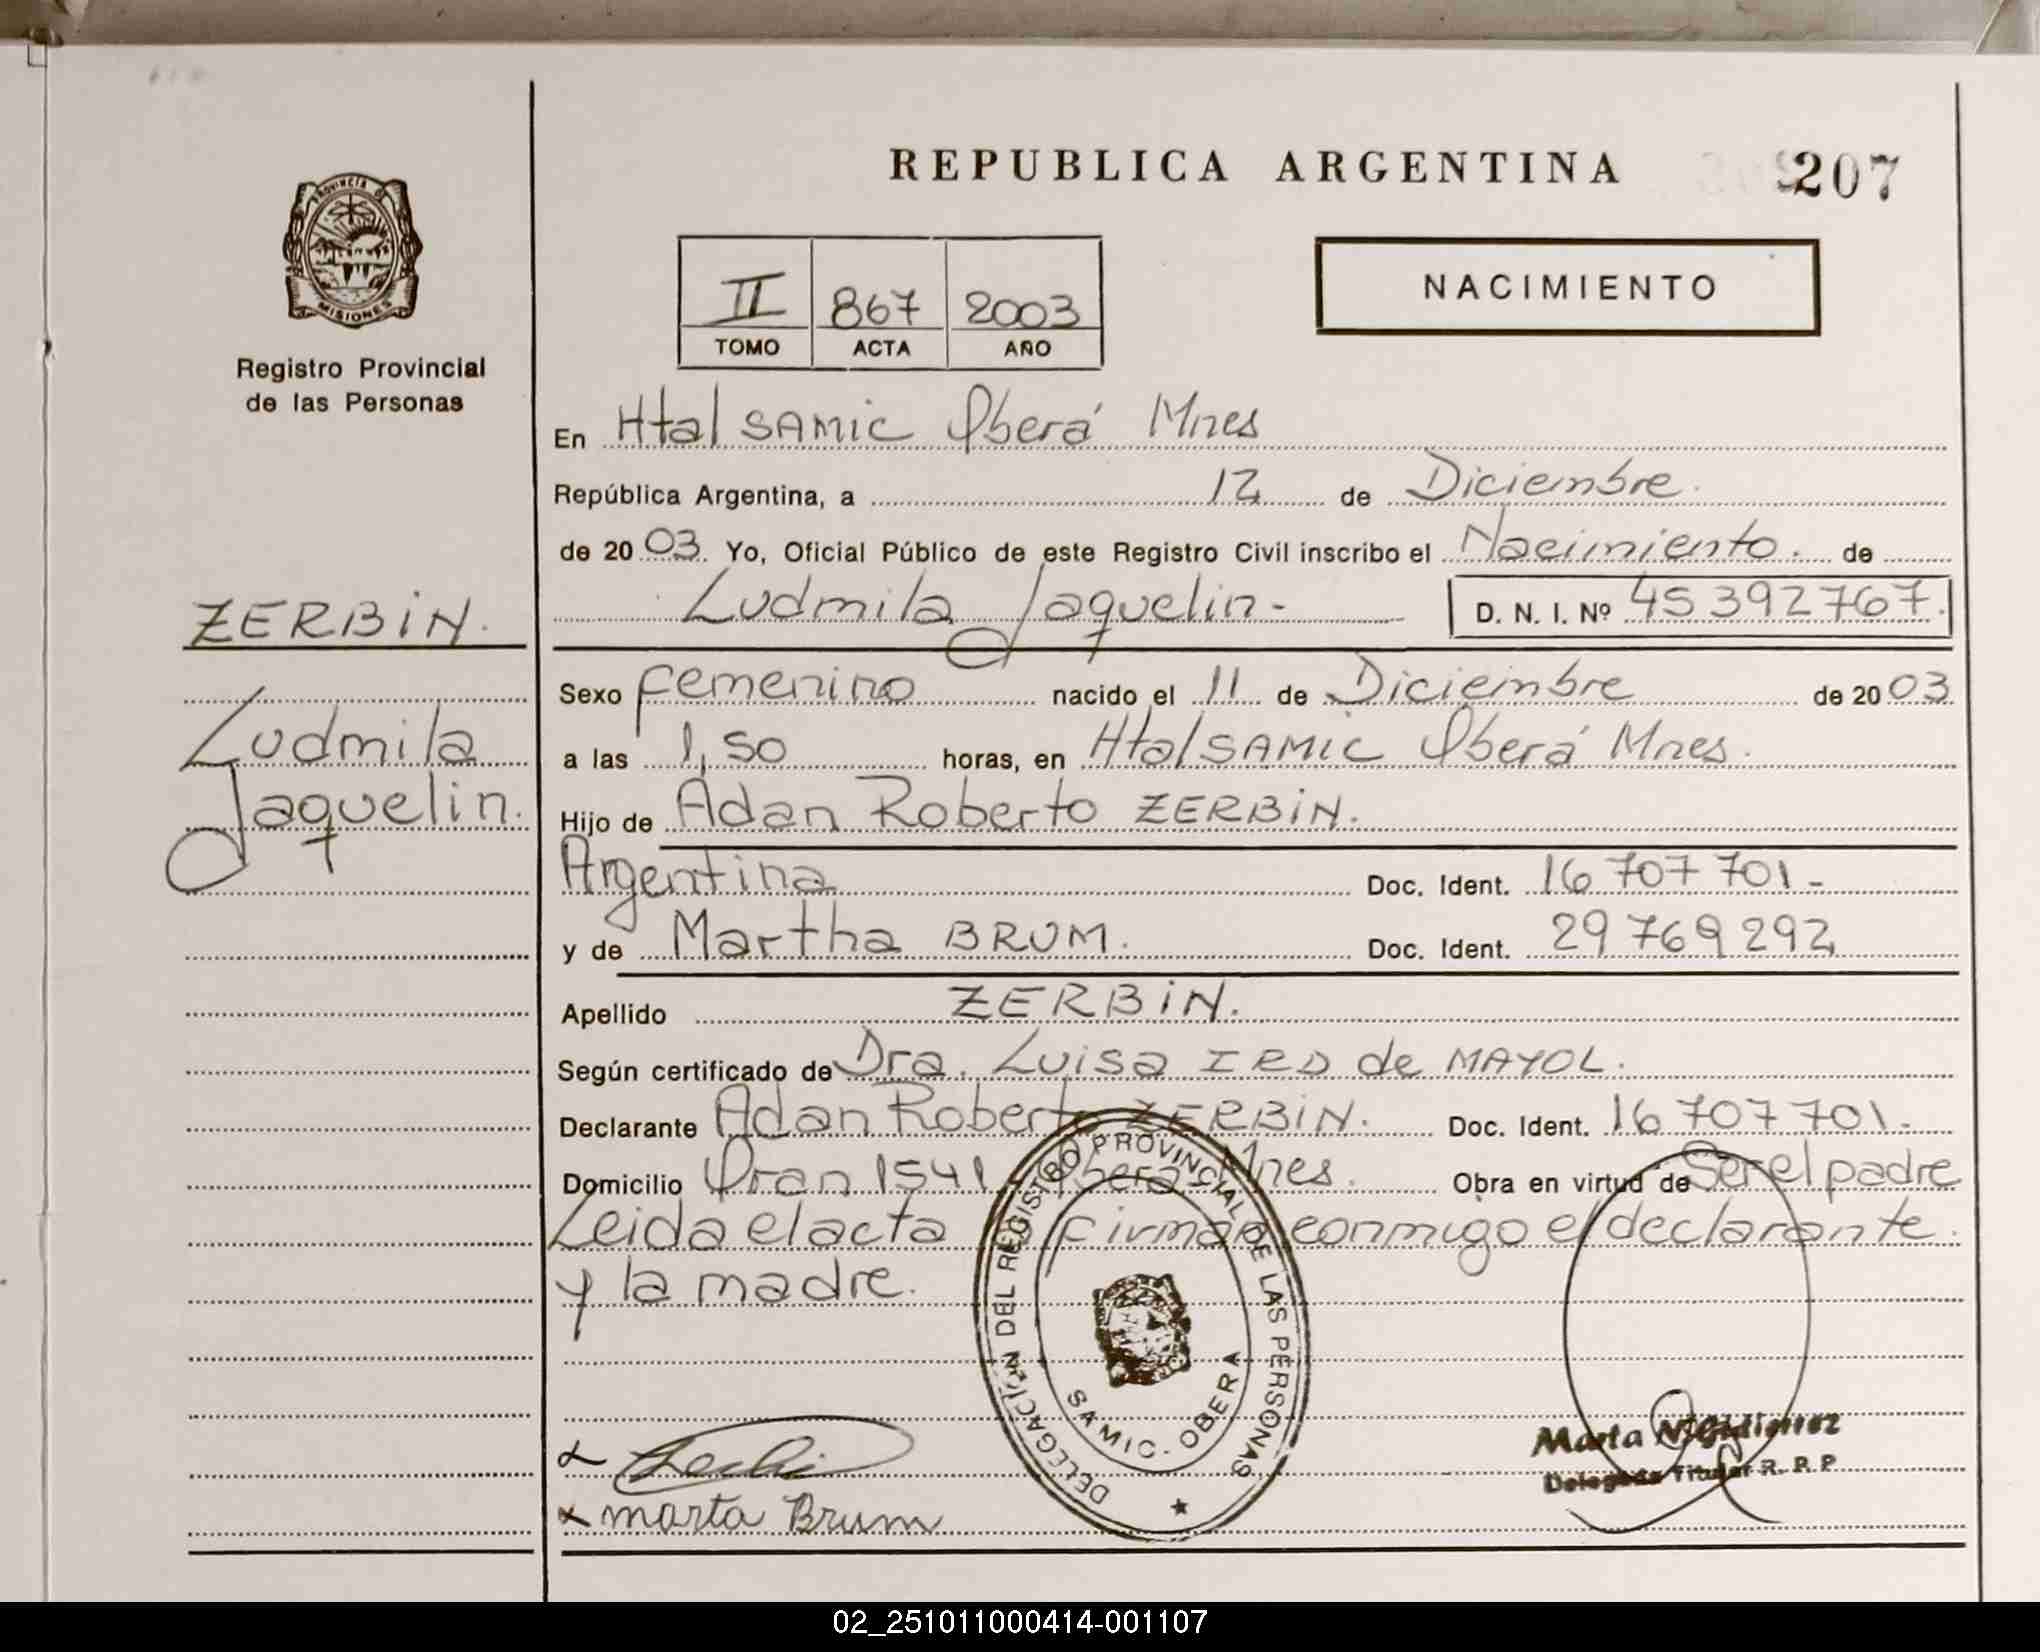 REPUBLICA ARGENTINA
207
PROVINCIA DE
MISIONES
Registro Provincial
de las Personas
II 867 2003
TOMO ACTA AÑO
NACIMIENTO
En Htal SAMIC Oberá Mnes
República Argentina, a 12 de Diciembre.
de 20 03. Yo, Oficial Público de este Registro Civil inscribo el Nacimiento. de
Ludmila Jaquelin- D. N. I. Nº 45 392 767.
ZERBIN.
Ludmila
Jaquelin.
Sexo Femenino nacido el 11 de Diciembre de 20 03
a las 1,50 horas, en Htal SAMIC Oberá Mnes.
Hijo de Adan Roberto ZERBIN.
Argentina Doc. Ident. 16 707 701-
y de Martha BRUM. Doc. Ident. 29 769 292
Apellido ZERBIN.
Según certificado de Dra. Luisa IRD de MAYOL.
Declarante Adan Roberto ZERBIN. Doc. Ident. 16 707 701.
Domicilio Oran 1541 Oberá Mnes. Obra en virtud de Ser el padre
Leida el acta firman conmigo el declarante.
y la madre.
DELEGACION DEL REGISTRO PROVINCIAL DE LAS PERSONAS
SAMIC - OBERA
marta Brum
Marta
Delegada Titular R. P. P
02_251011000414-001107